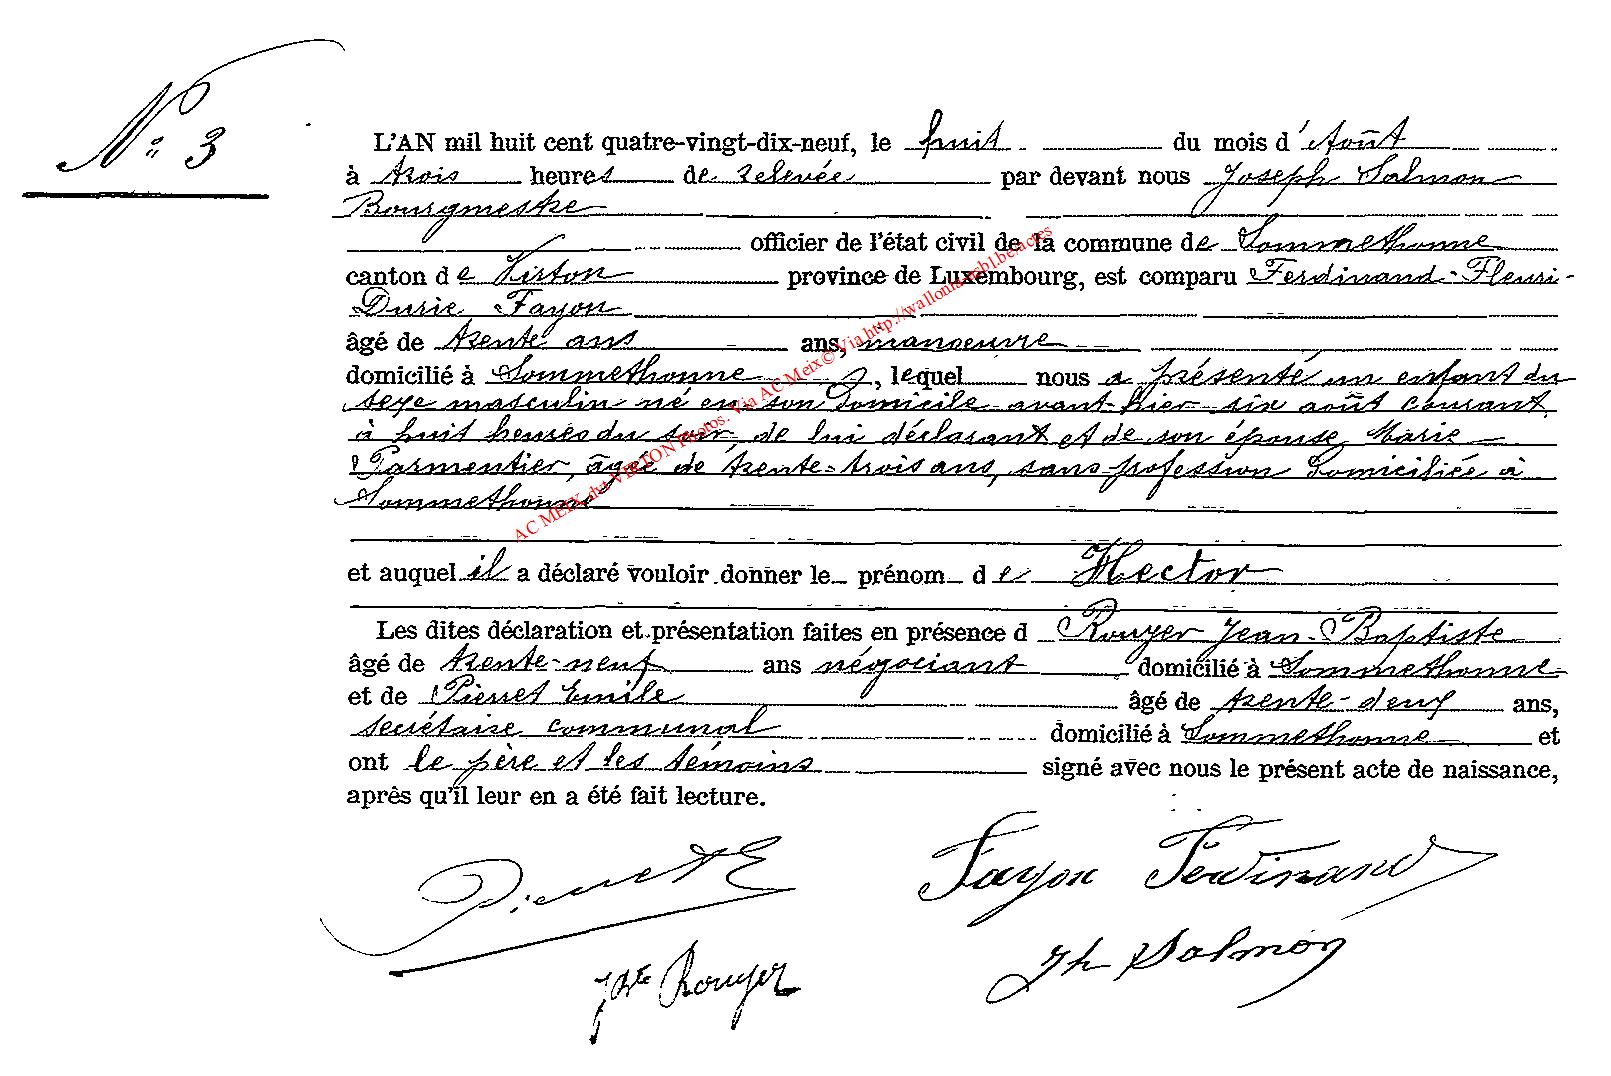 N° 3
L'AN mil huit cent quatre-vingt-dix-neuf, le huit du mois d'Août
à trois heures de relevée par devant nous Joseph Salmon
Bourgmestre
officier de l'état civil de la commune de Sommethonne
canton de Virton province de Luxembourg, est comparu Ferdinand-Fleuri-
Durie Fayon
âgé de trente ans ans, manoeuvre
domicilié à Sommethonne, lequel nous a présenté un enfant du
sexe masculin né en son domicile avant-hier six août courant
à huit heures du soir, de lui déclarant et de son épouse Marie
Parmentier, âgée de trente-trois ans, sans profession domiciliée à
Sommethonne
et auquel il a déclaré vouloir donner le prénom de Hector
Les dites déclaration et présentation faites en présence d Rouyer Jean-Baptiste
âgé de trente-neuf ans négociant domicilié à Sommethonne
et de Pierret Emile âgé de trente-deux ans,
secrétaire communal domicilié à Sommethonne et
ont le père et les témoins signé avec nous le présent acte de naissance,
après qu'il leur en a été fait lecture.
Pierret E Fayon Ferdinand
Jbte Rouyer Jh Salmon
AC MEIX du VIRTON Photos. Via AC Meix© Via http://wallonia.asbl.be/actes